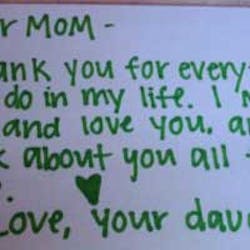 r MOM -
ank you for every
do in my life. I
and love you, a
k about you all
.
Love, your dau